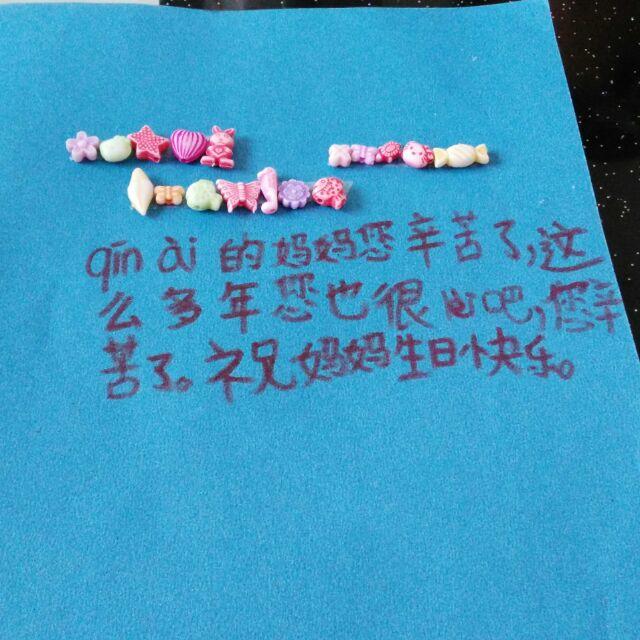 qīn ài 的妈妈您辛苦了,这
么多年您也很心吧,您辛
苦了。祝妈妈生日快乐。